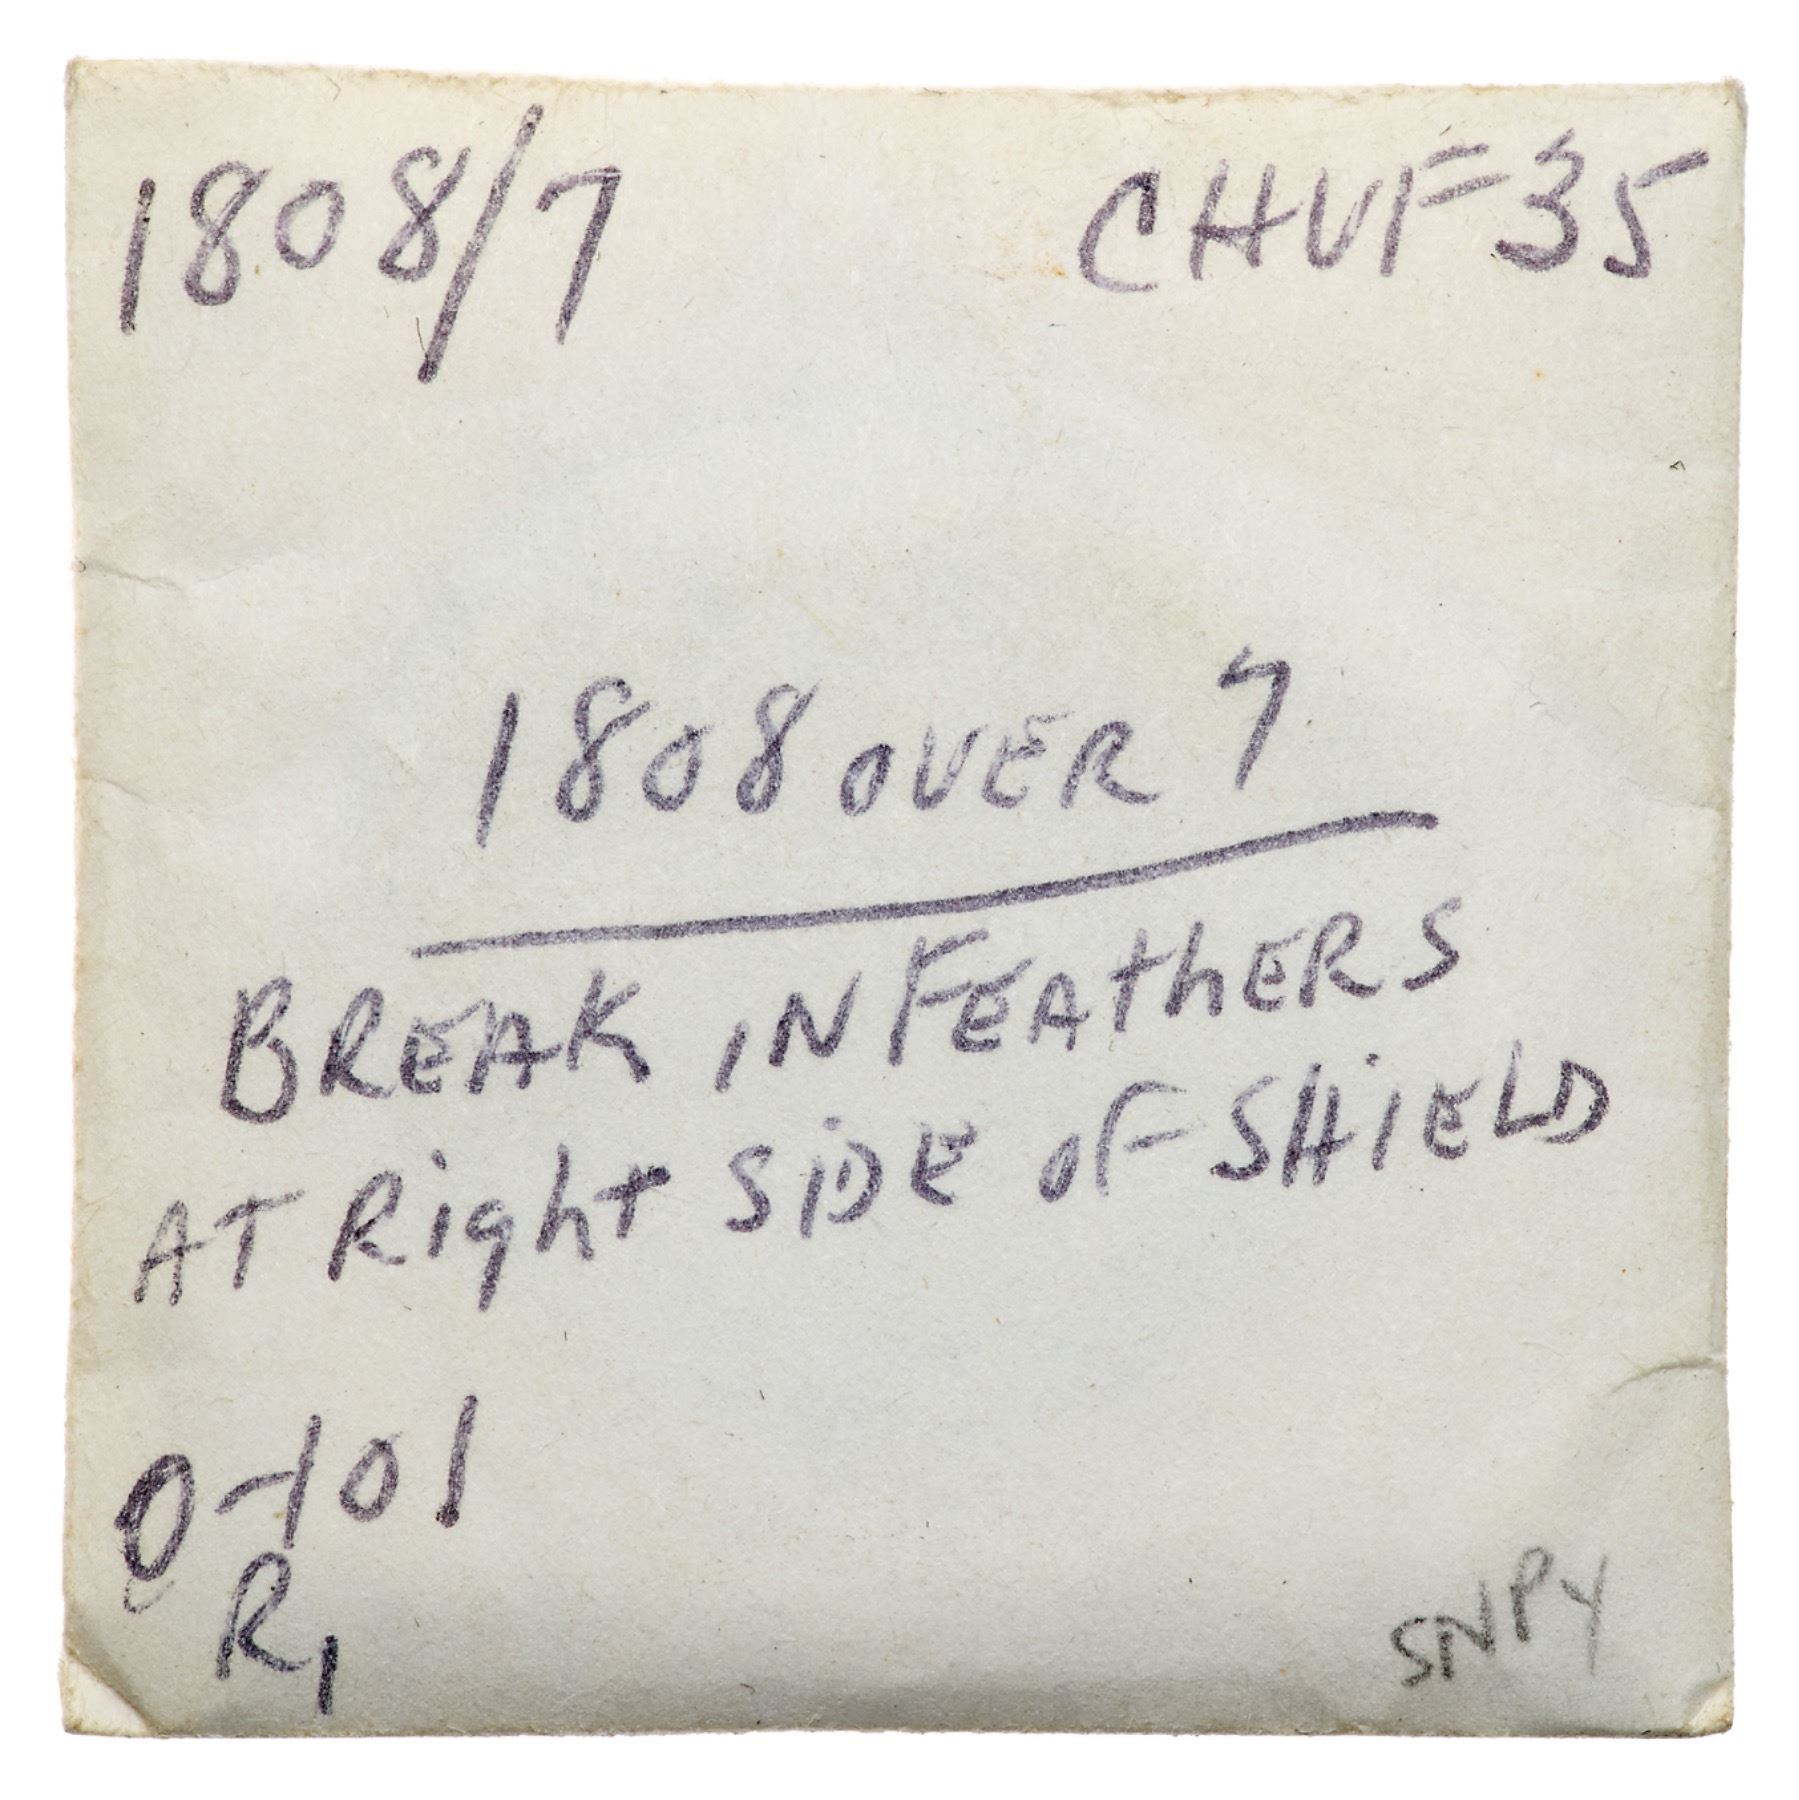 1808/7 CHVF35
1808 OVER 7
BREAK IN FEAthERS
AT Right SiDE OF SHiELD
O-101
R1
SNPY